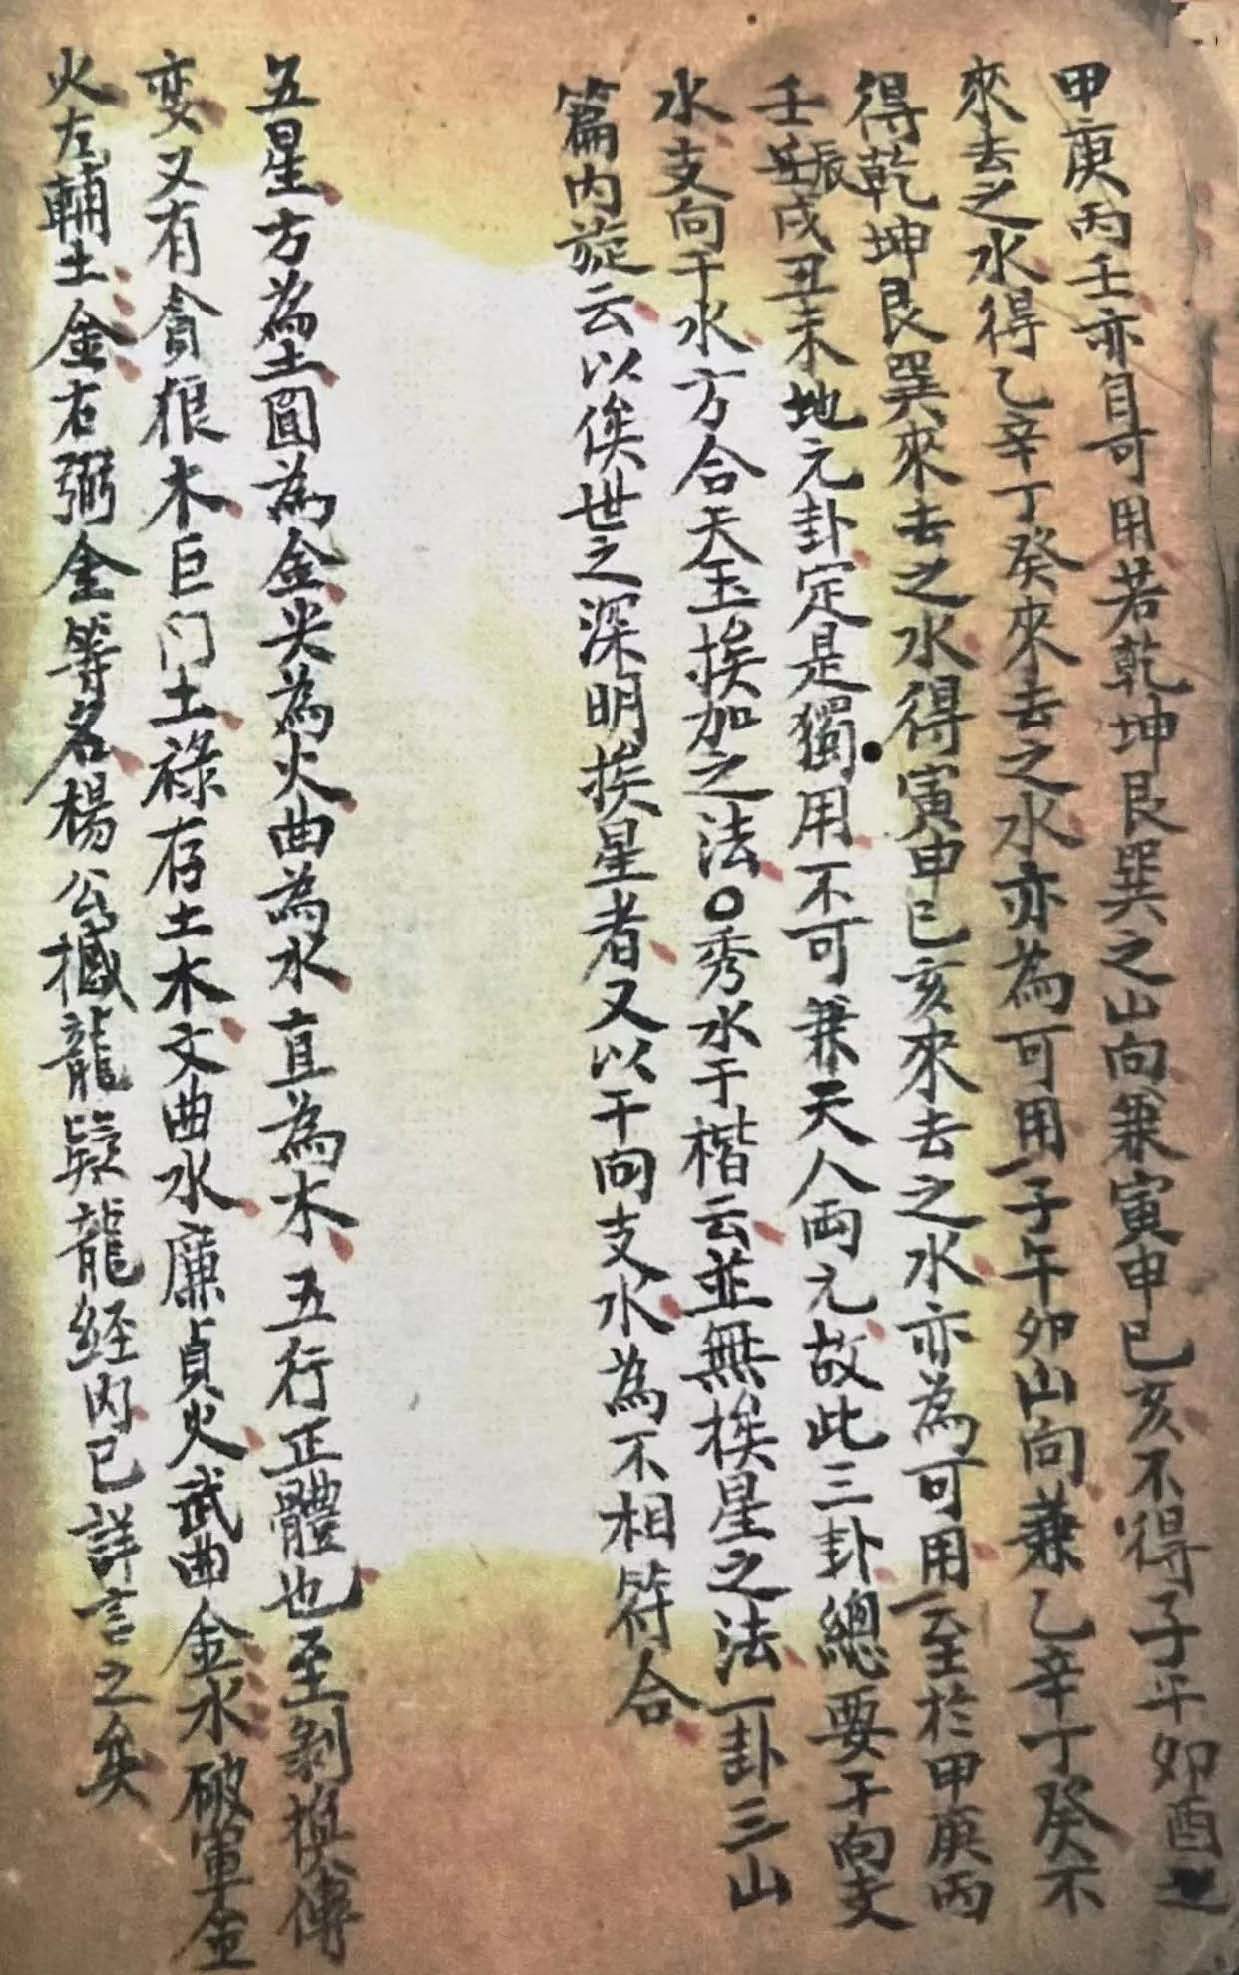 甲庚丙壬亦自可用若乾坤艮巽之山向兼寅申巳亥不得子午卯酉之
來去之水得乙辛丁癸來去之水亦為可用子午卯山向兼乙辛丁癸不
得乾坤艮巽來去之水得寅申巳亥來去之水亦為可用至於甲庚丙
壬辰戌丑未地元卦定是獨用不可兼天人両元故此三卦總要干向支
水支向干水方合天玉挨加之法○秀水于楷云並無挨星之法一卦三山
篇内旋云以俟世之深明挨星者又以干向支水為不相符合
五星方為土圓為金尖為火曲為水直為木五行正體也至剝換傳
変又有貪狼木巨门土祿存土木文曲水廉貞火武曲金水破軍金
火左輔土金右弼金等名楊公撼龍疑龍経内已詳言之矣